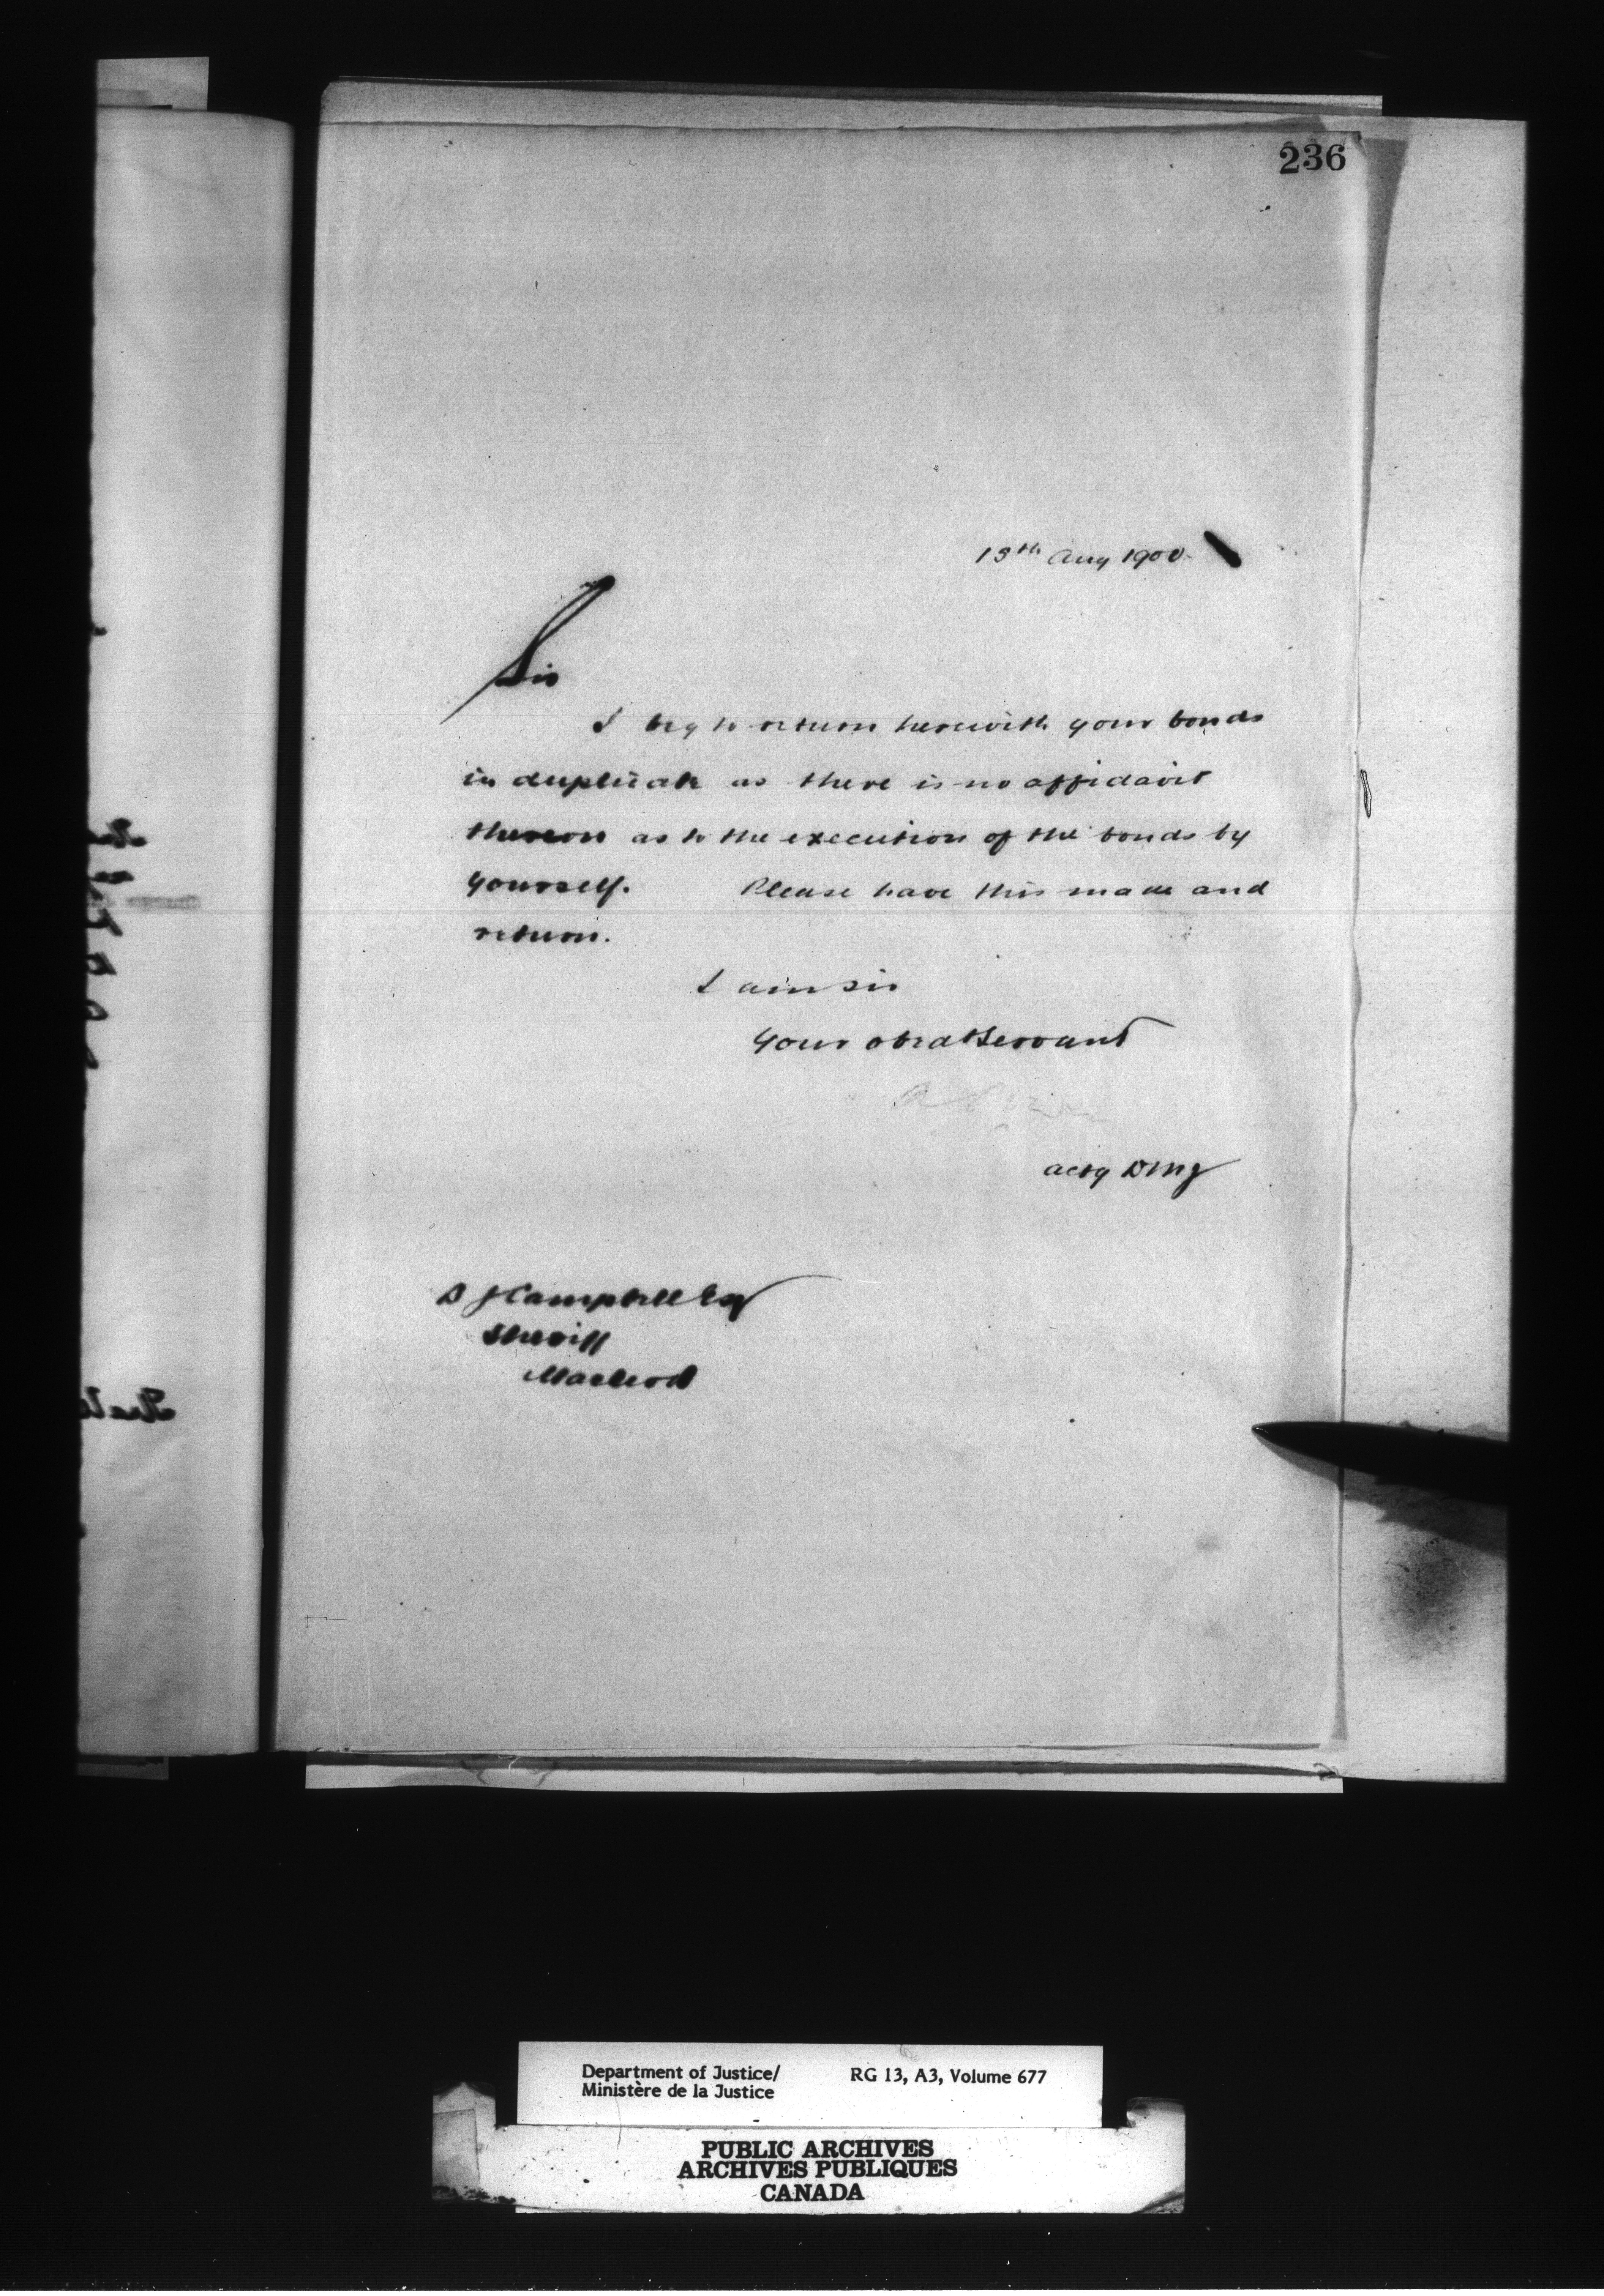 236
15th Aug 1900
Sir
I beg to return herewith your bonds
in duplicate as there is no affidavit
thereon as to the execution of the bonds by
yourself. Please have this made and
return.
I am sir
Your obedt Servant
actg DMJ
D J Campbell Esq
Sheriff
Macleod
Department of Justice/ RG 13, A3, Volume 677
Ministère de la Justice
PUBLIC ARCHIVES
ARCHIVES PUBLIQUES
CANADA